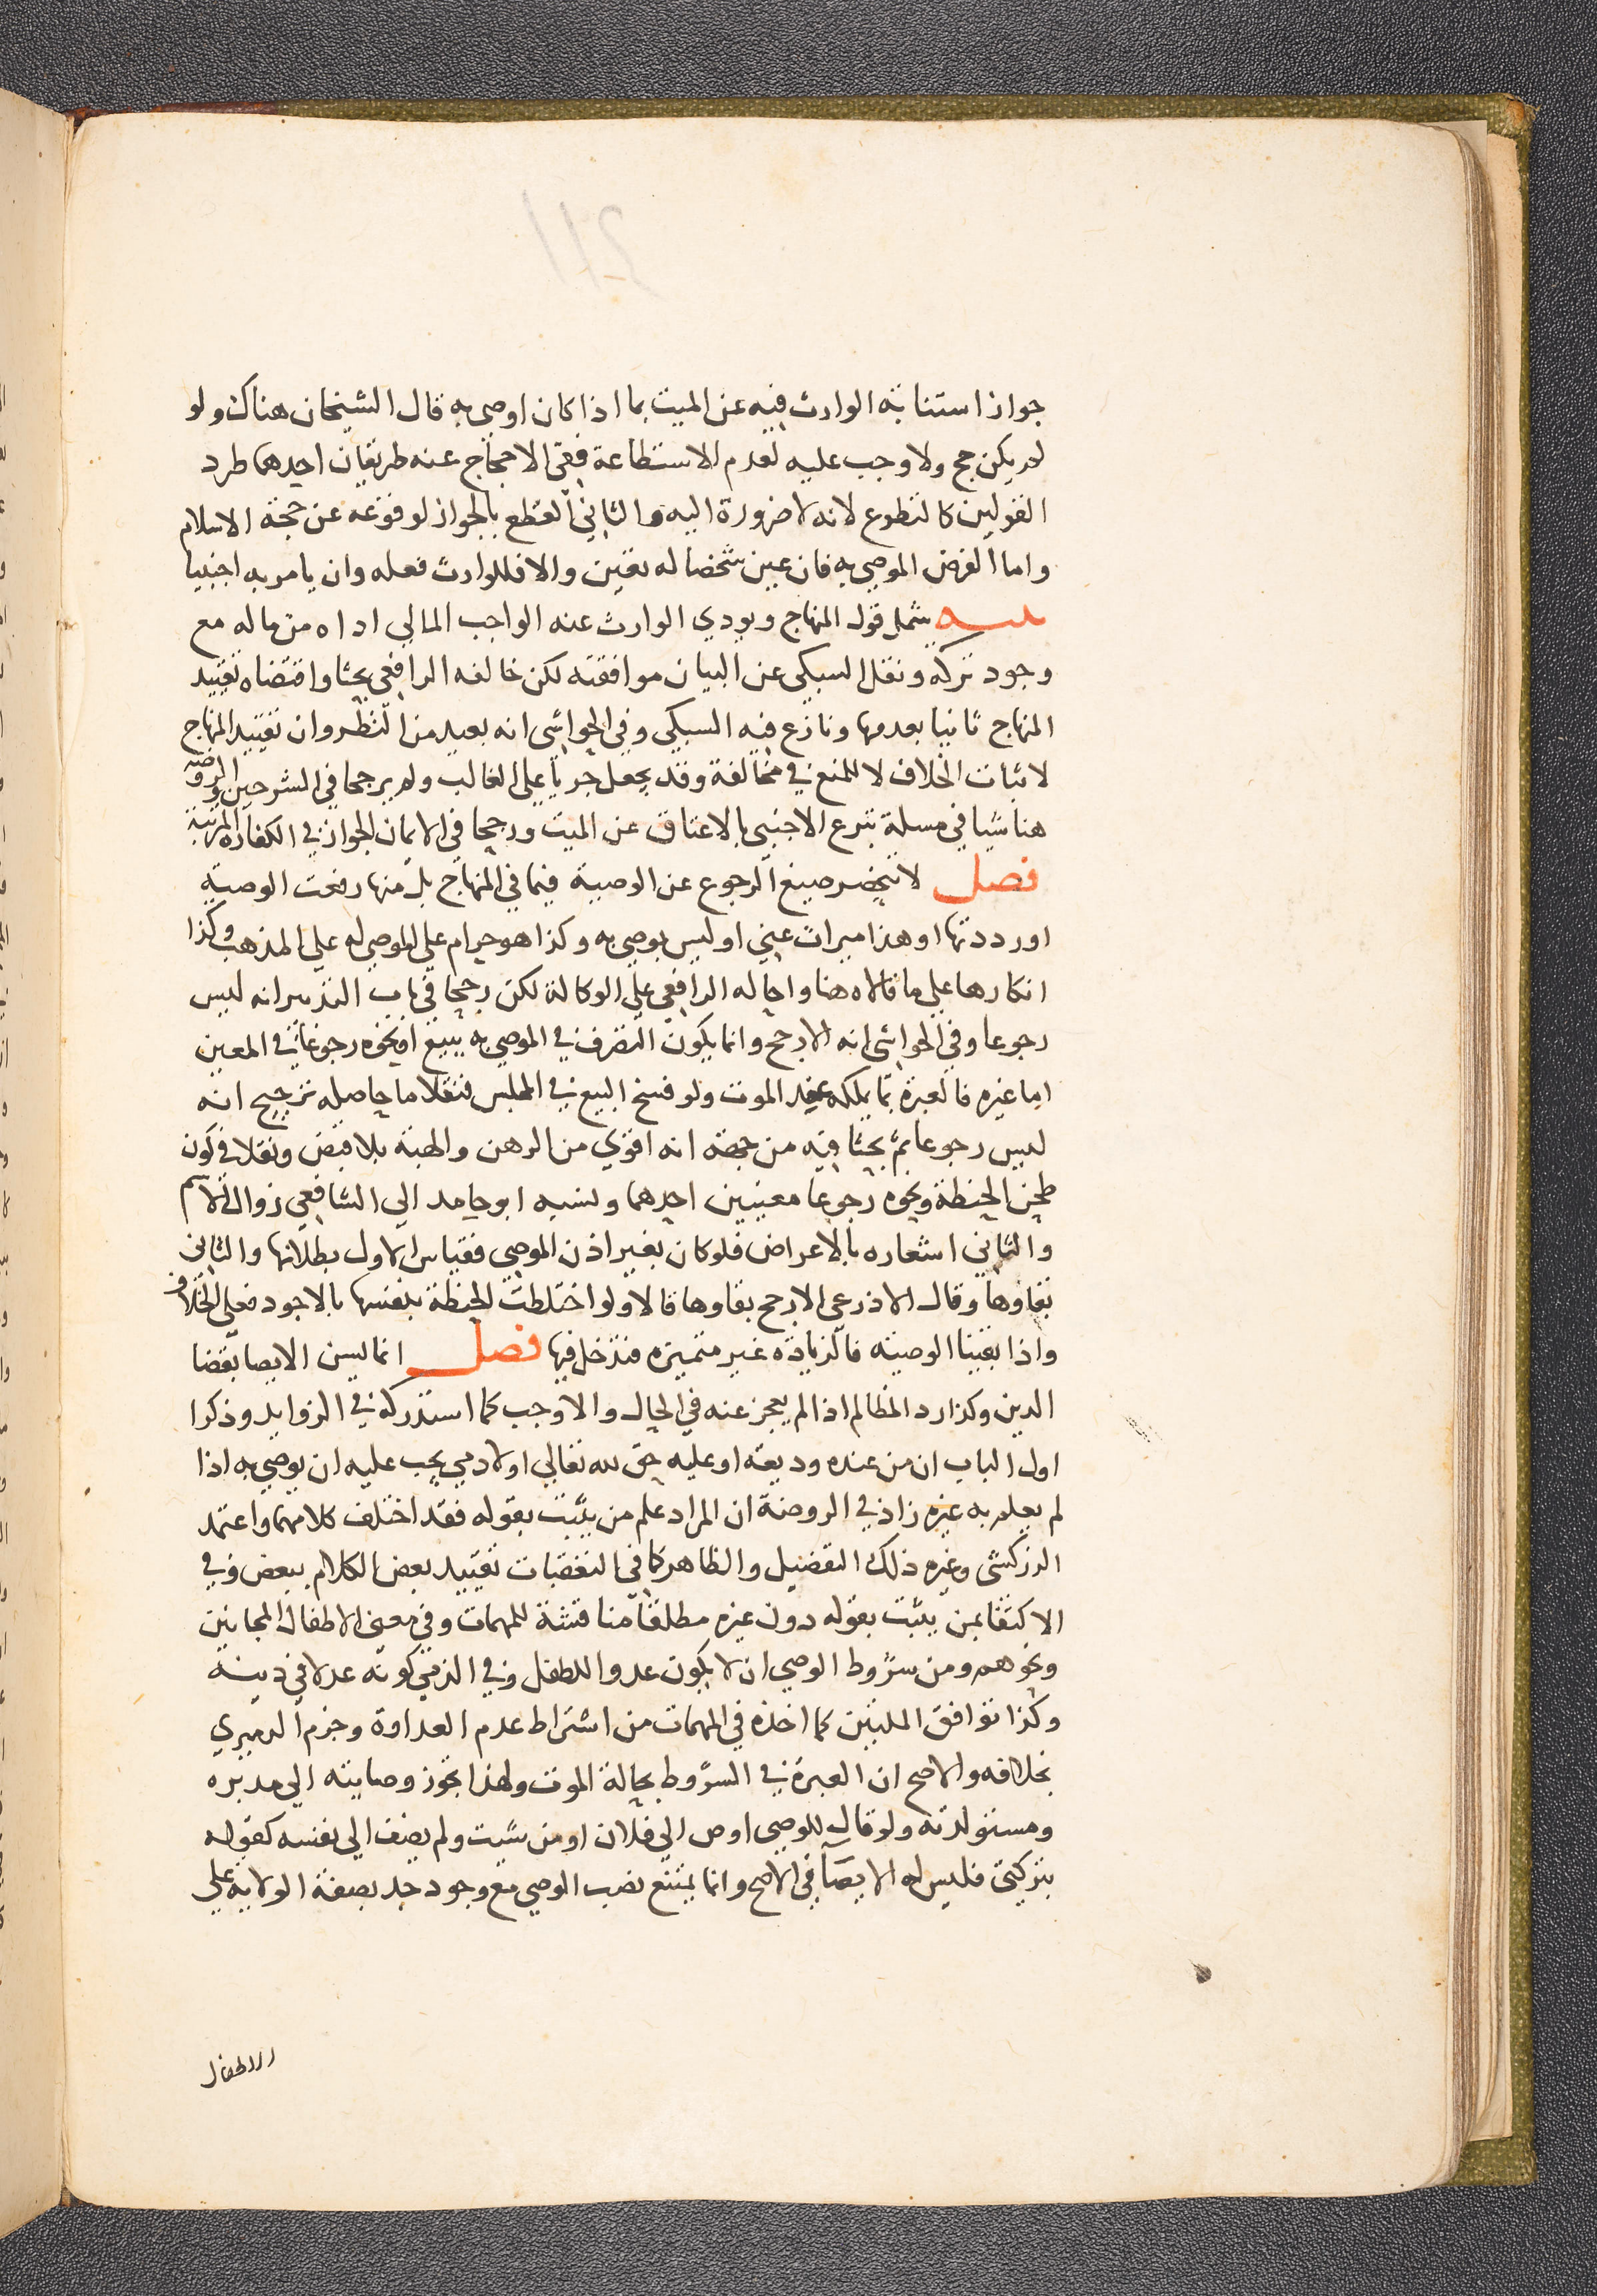 جواز استنابة الوارث فيه عن الميت بما اذا كان اوصى به قال الشيخان هناك ولو
لم يكن حج ولا وجب عليه لعدم الاستطاعة ففي الاحجاج عنه طريقان احدهما طرد
القولين كالتطوع لانه لا ضرورة اليه والثاني القطع بالجواز لوقوعه عن حجة الاسلام
واما الفرض الموصى به فان عين شخصا له تعين والا فللوارث فعله وان يامر به اجنبيا
تنبيه يشمل قول المنهاج ويودي الوارث عنه الواجب المالي اداه من ماله مع
وجود تركة ونقل السبكي عن البيان موافقته لكن خالفه الرافعي بحثا واقتضاه تقييد
المنهاج ثانيا بعدمها ونازع فيه السبكي وفي الحواشي انه بعيد من النظر وان تقييد المنهاج
لاثبات الخلاف لا للمنع في مخالفة وقد يجعل جريا على الغالب ولم يرجحا في الشرحين والروضة
هنا شيا في مسلة تبرع الاجنبي بالاعتاق عن الميت ورجحا في الايمان الجواز في الكفارة المرتبة
فصل لا تنحصر صيغ الرجوع عن الوصية فيما في المنهاج بل منها رفعت الوصية
او رددتها او هذا ميراث عني او ليس بوصي به وكذا هو حرام على الموصى له على المذهب وكذا
انكارها على ما قالاه هنا واحاله الرافعي على الوكالة لكن رجحا في باب التدبير انه ليس
رجوعا وفي الحواشي انه الارجح وانما يكون التصرف في الموصى به ببيع او نحوه رجوعا في المعين
اما غيره فالعبرة بما يملكه عند الموت ولو فسخ البيع في المجلس فنقلا ما حاصله ترجيح انه
ليس رجوعا ثم بحثا فيه من جهة انه اقوي من الرهن والهبة بلا قبض ونقلا في كون
طحن الحنطة ونحوه رجوعا معنيين احدهما ونسبه ابو حامد الى الشافعي زوال الاسم
والثاني اشعاره بالاعراض فلو كان بغير اذن الموصي فقياس الاول بطلانها والثاني
بقاوها وقال الاذرعي الارجح بقاوها قالا ولو اختلطت الحنطة بنفسها بالاجود فعلى الخلاف
واذا بقينا الوصية فالزيادة غير متميزة فتدخل فيها فصل انما يسن الايصا بقضا
الدين وكذا رد المظالم اذا لم يعجز عنه في الحال والا وجب كما استدركه في الزوايد وذكرا
اول الباب ان من عنده وديعة او عليه حق لله تعالي او لادمي يجب عليه ان يوصي به اذا
لم يعلم به غيره زاد في الروضة ان المراد علم من يثبت بقوله فقد اختلف كلامهما واعتمد
الزركشي وغيره ذلك التفصيل والظاهر كما في التعقبات تقييد بعض الكلام ببعض وفي
الاكتفا بمن يثبت بقوله دون غيره مطلقا مناقشة للمهمات وفي معنى الاطفال المجانين
ونحوهم ومن شروط الوصي ان لا يكون عدوا للطفل وفي الذمي كونه عدلا في دينه
وكذا توافق الملتين كما اخذه في المهمات من اشتراط عدم العداوة وجزم الدميري
بخلافه والاصح ان العبرة في الشروط بحالة الموت ولهذا تجوز وصايته الى مدبره
ومستولدته ولو قال للوصي اوص الي فلان او من شيت ولم يضف الي نفسه كقوله
بتركتي فليس له الايصاء في الاصح وانما يمتنع نصب الوصي مع وجود جد بصفة الولاية على
الاطفال